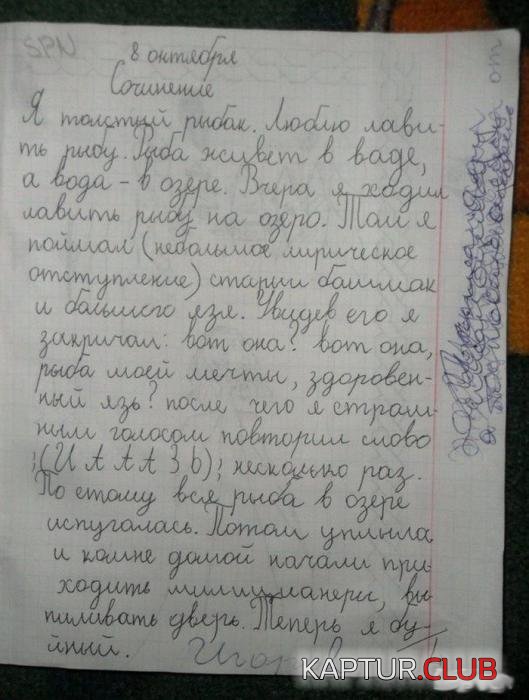 SPN
8 октября
Сочинение
Я толстый рыбак. Люблю лави-
ть рыбу. Рыба живет в ваде,
а вода - в озере. Вчера я ходил
лавить рыбу на озеро. Там я
поймал (небольшое лирическое
отступление) старии башмак
и большого язя. Увидев его я
закричал: вот она? вот она,
рыба моей мечты, здоровен-
ный язь? после чего я страш-
ным голосом повторил слово
;(И А А А З Ь); несколько раз.
По етому вся рыба в озере
испугалась. Потом уплыла
и комне домой начали при
ходить милиционеры, вы
пиливать дверь. Теперь я бу-
йный.
от
KAPTUR.CLUB